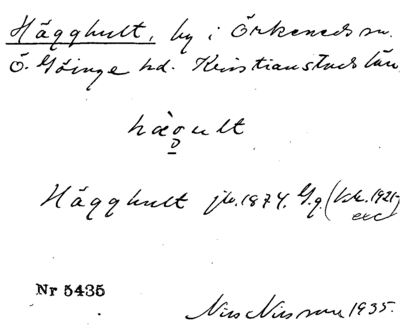 Hägghult, by i Örkeneds sn.
Ö. Göinge hd. Kristianstads län,
hægult
Hägghult jb. 1874. G.g. (bsk. 1921
exc
Nr 5435
Nils Nilsson 1935.